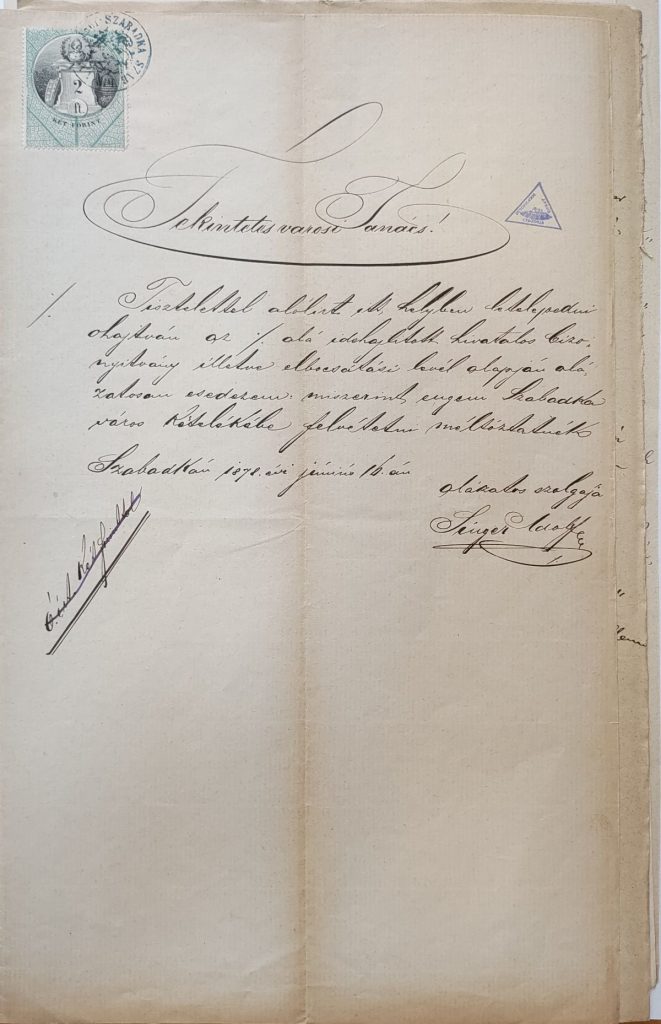 SZABADKA SZAB
2
ft
KÉT FORINT
Tekintetes városi Tanács!
·/.
Tisztelettel alolirt itt helyben letelepedni
ohajtván az ·/. alá idehajlitott hivatalos bizo-
nyitvány illetve elbocsátási levél alapján alá-
zatosan esedezem: miszerint engem Szabadka
város Kötelékébe felvétetni méltóztatnék
Szabadkán 1878. évi június 16.án
alázatos szolgája
Singer Adolf